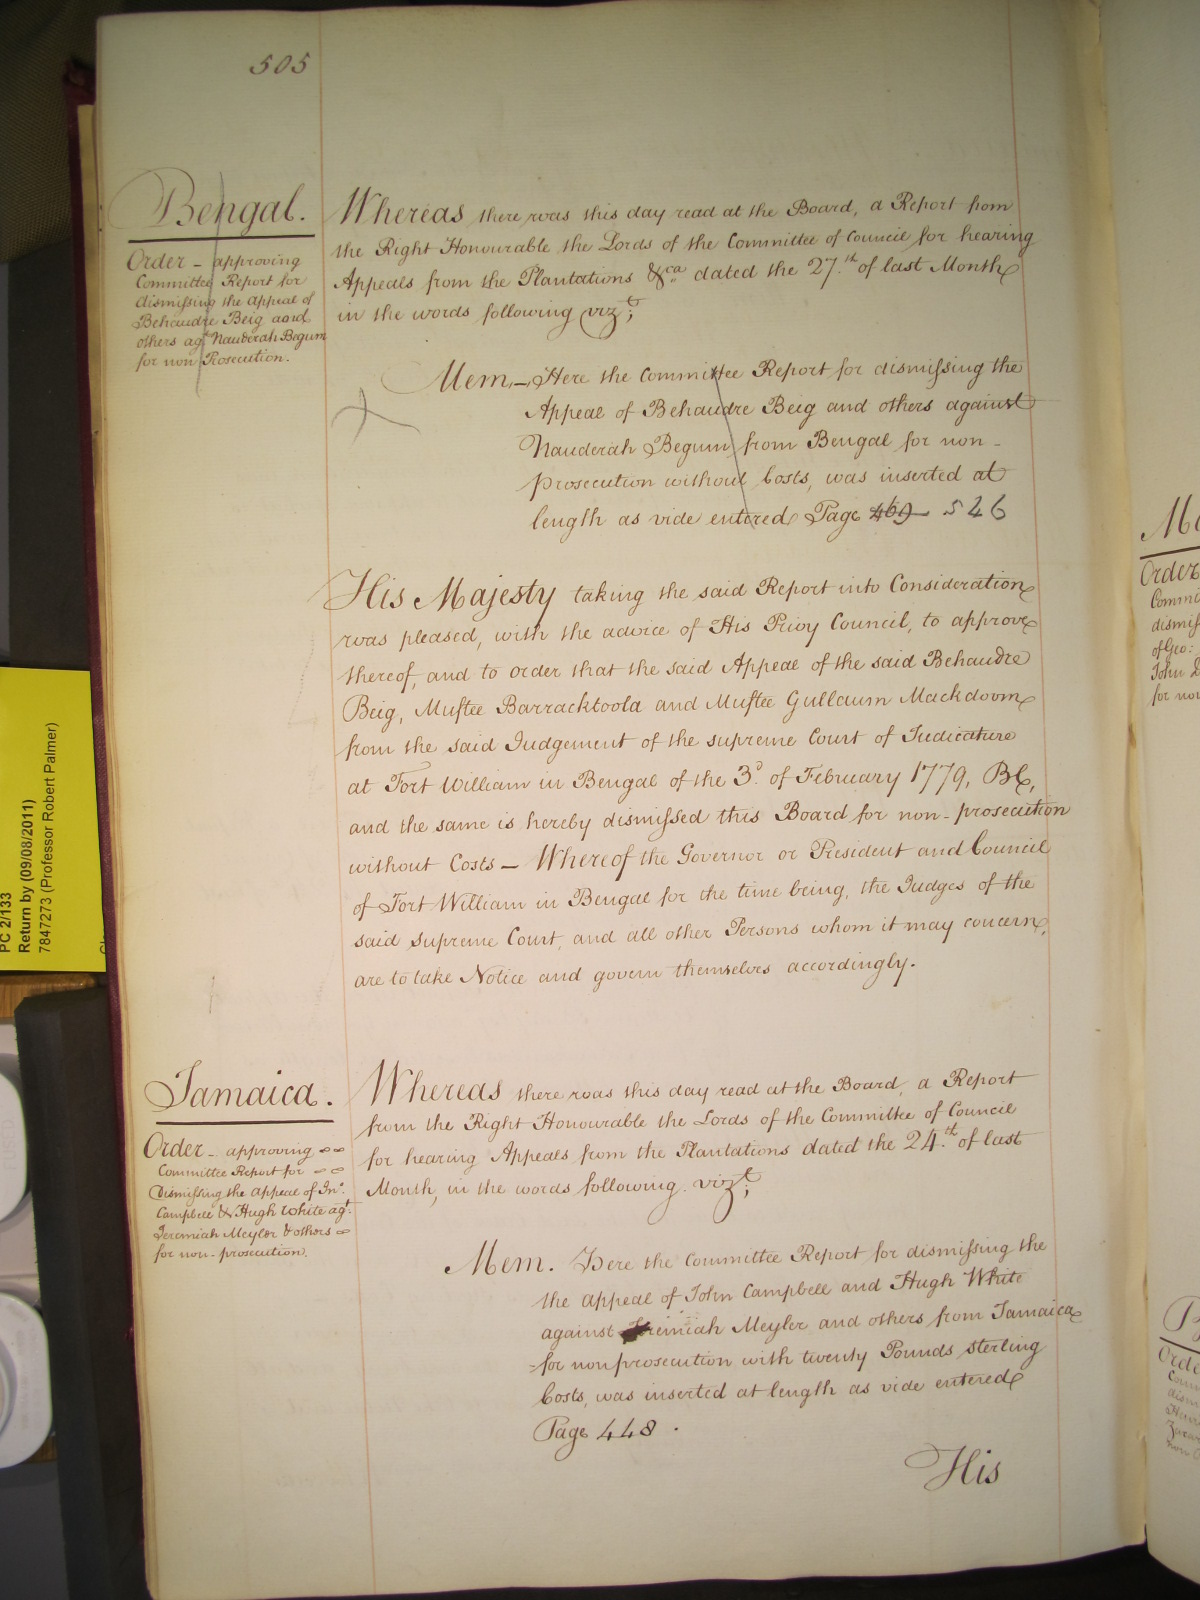 505
Bengal.
Order _ approving
Committee Report for
dismissing the Appeal of
Behaudre Beig and
others agt Nauderah Begum
for non Prosecution.
Whereas there was this day read at the Board, a Report from
the Right Honourable the Lords of the Committee of Council for hearing
Appeals from the Plantations &ca dated the 27.th of last Month
in the words following vizt;
Mem._ Here the Committee Report for dismissing the
Appeal of Behaudre Beig and others against
Nauderah Begum from Bengal for non-
prosecution without Costs, was inserted at
length as vide entered Page 469 526
His Majesty taking the said Report into Consideration
was pleased, with the advice of His Privy Council, to approve
thereof, and to order that the said Appeal of the said Behaudre
Beig, Muftee Barracktoola and Muftee Gullaum Mackdoom
from the said Judgement of the supreme Court of Judicature
at Fort William in Bengal of the 3d. of February 1779, BE,
and the same is hereby dismissed this Board for non-prosecution
without Costs _ Whereof the Governor or President and Council
of Fort William in Bengal for the time being, the Judges of the
said supreme Court, and all other Persons whom it may concern,
are to take Notice and govern themselves accordingly.
Jamaica.
Order _ approving
Committee Report for
Dismissing the Appeal of Jno.
Campbell & Hugh White agt.
Jeremiah Meyler & others
for non-prosecution.
Whereas there was this day read at the Board, a Report
from the Right Honourable the Lords of the Committee of Council
for hearing Appeals from the Plantations dated the 24.th of last
Month, in the words following. vizt;
Mem. Here the Committee Report for dismissing the
the appeal of John Campbell and Hugh White
against Jeremiah Meyler and others from Jamaica
for nonprosecution with twenty Pounds sterling
Costs, was inserted at length as vide entered
Page 448.
His
PC 2/133
Return by (09/08/2011)
7847273 (Professor Robert Palmer)
Order
Commi
dismiss
of Geo:
John
for non
Orde